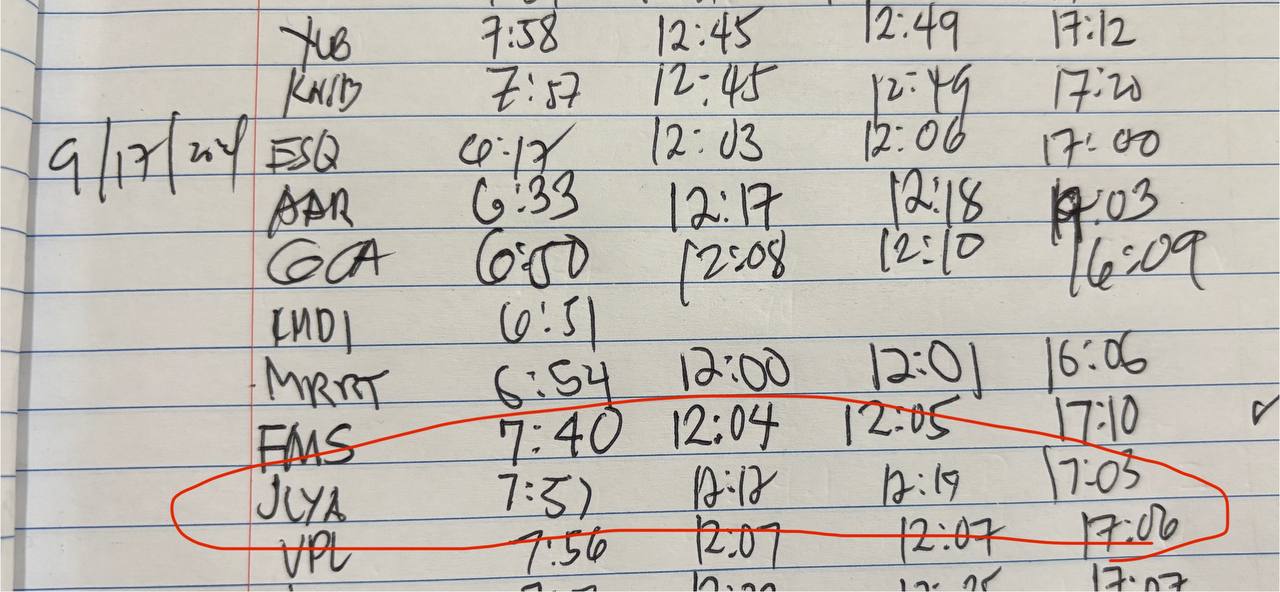 YUB 7:58 12:45 12:49 17:12
KNIB 7:57 12:45 12:49 17:20
9/17/2024 ESQ 6:17 12:03 12:06 17:00
AAR 6:33 12:17 12:18 17:03
GCA 6:50 12:08 12:10 16:09
6:51
MRRT 6:54 12:00 12:01 16:06
FMS 7:40 12:04 12:05 17:10 ✓
JLYA 7:57 12:17 12:19 17:03
VPL 7:56 12:07 12:07 17:06
17:07